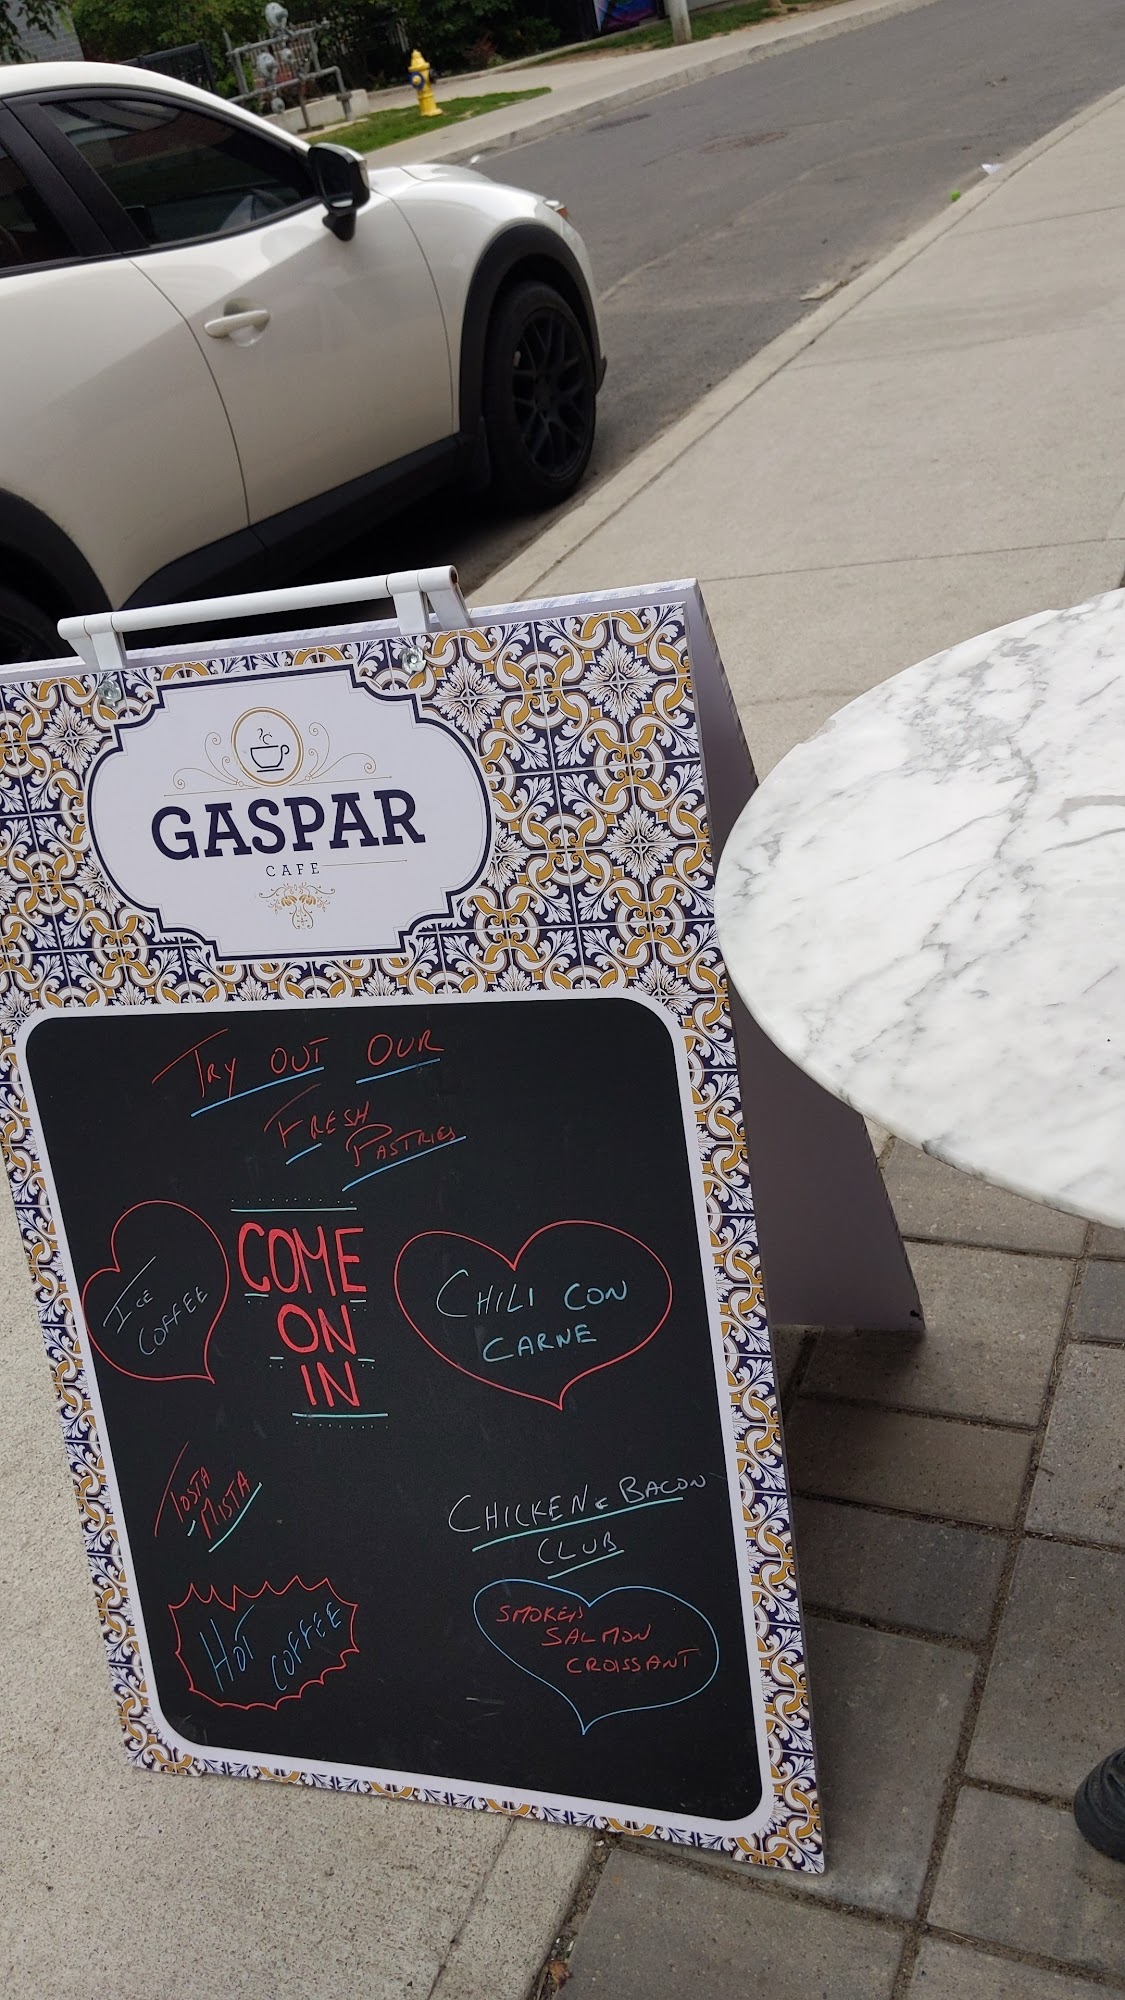 GASPAR
CAFE
TRY OUT OUR
FRESH
PASTRIES
COME
ON
IN
ICE
COFFEE
CHILI CON
CARNE
TOSTA
MISTA
CHICKEN & BACON
CLUB
HOT COFFEE
SMOKED
SALMON
CROISSANT